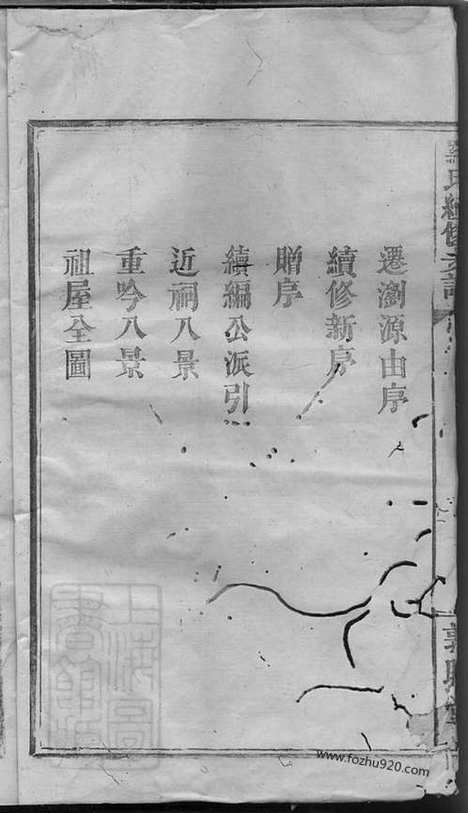 遷瀏源由序
續修新序
贈序
續編公派引
近祠八景
重吟八景
祖屋全圖
上海圖書館藏
www.fozhu920.com